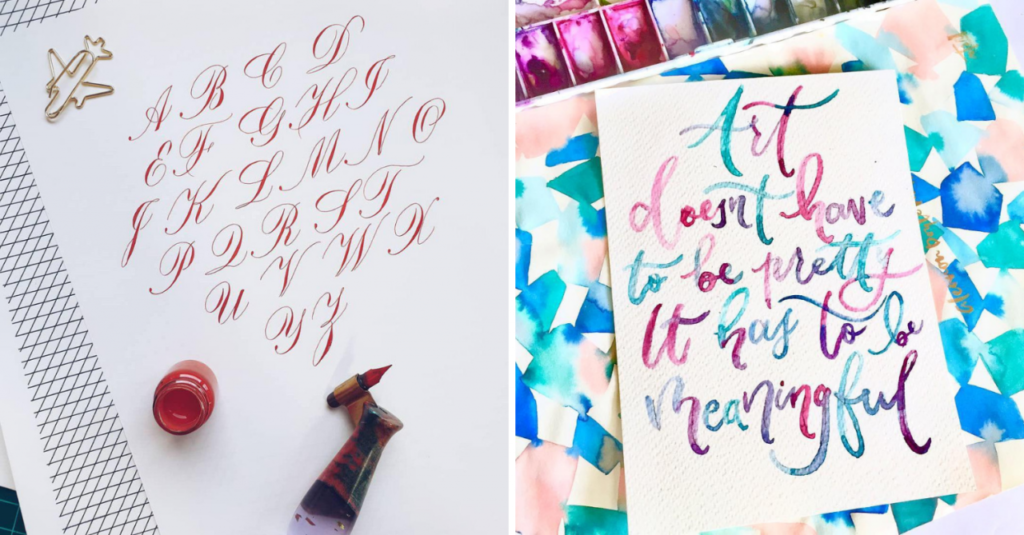 A B C D
E F G H I
J K L M N O
P Q R S T
U V W X
Y Z
Art
doesn't have
to be pretty
It has to be
meaningful